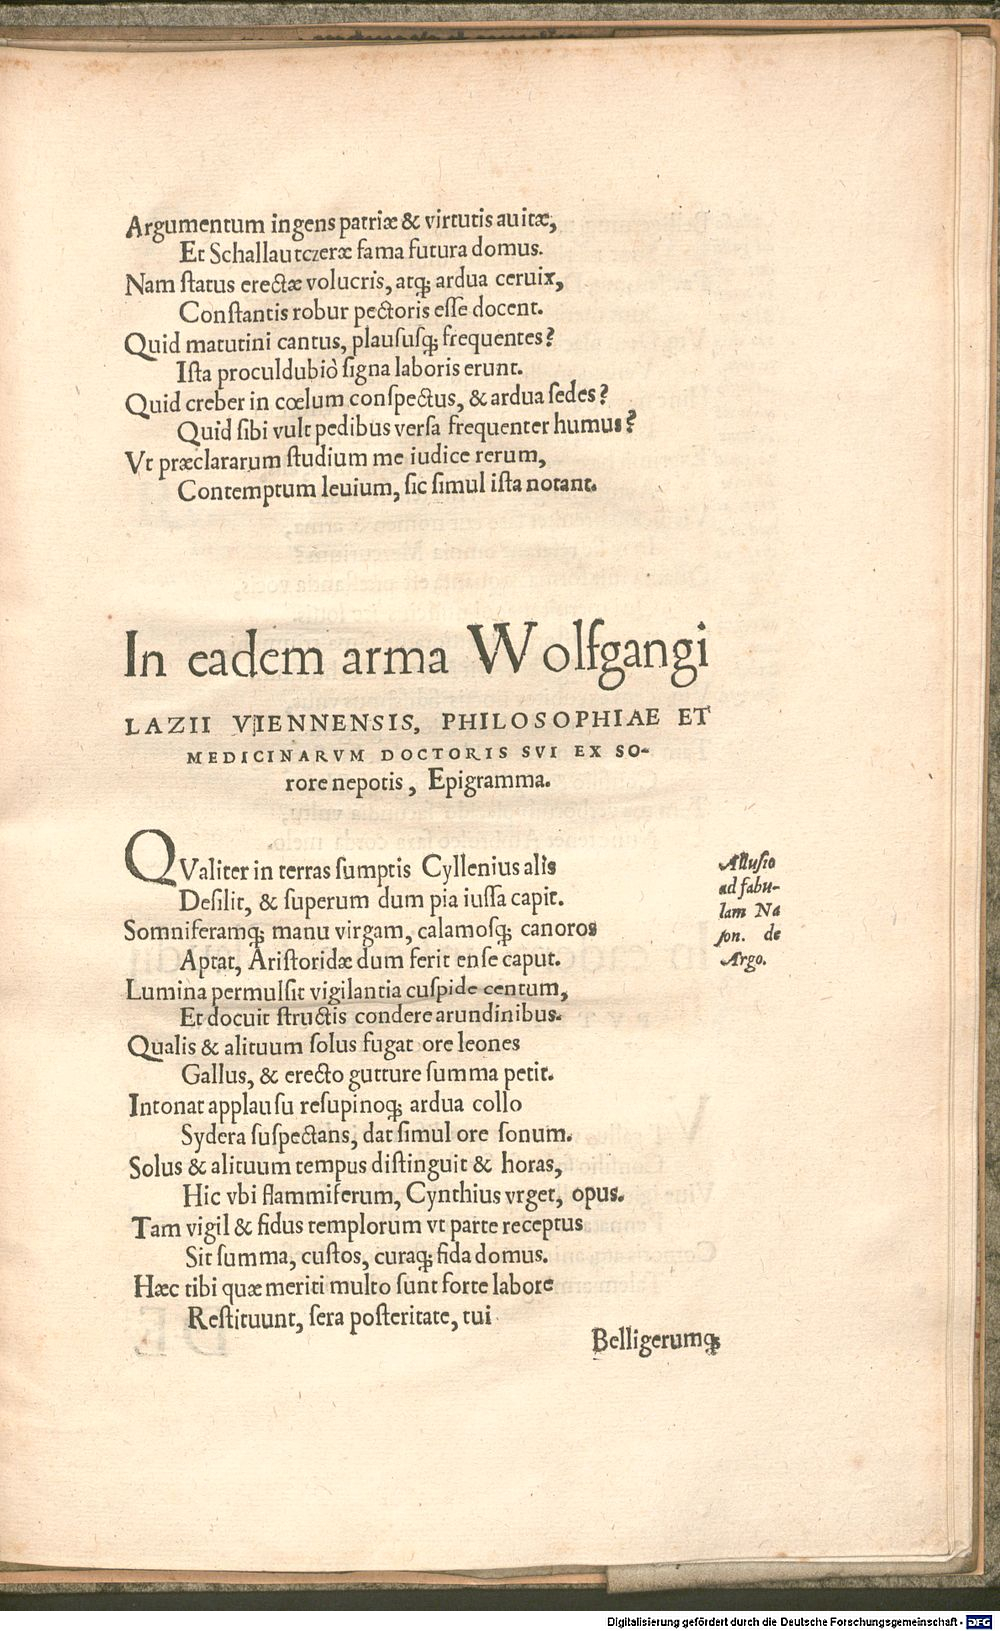 Argumentum ingens patriæ & virtutis auitæ,
Et Schallautczeræ fama futura domus.
Nam status erectæ volucris, atq; ardua ceruix,
Constantis robur pectoris esse docent.
Quid matutini cantus, plaususq; frequentes?
Ista proculdubiò signa laboris erunt.
Quid creber in cœlum conspectus, & ardua sedes?
Quid sibi vult pedibus versa frequenter humus?
Vt præclararum studium me iudice rerum,
Contemptum leuium, sic simul ista notant.
In eadem arma Wolfgangi
LAZII VIENNENSIS, PHILOSOPHIAE ET
MEDICINARVM DOCTORIS SVI EX SO-
rore nepotis, Epigramma.
QValiter in terras sumptis Cyllenius alis
Desilit, & superum dum pia iussa capit.
Somniferamq; manu virgam, calamosq; canoros
Aptat, Aristoridæ dum ferit ense caput.
Lumina permulsit vigilantia cuspide centum,
Et docuit structis condere arundinibus.
Qualis & alituum solus fugat ore leones
Gallus, & erecto gutture summa petit.
Intonat applausu resupinoq; ardua collo
Sydera suspectans, dat simul ore sonum.
Solus & alituum tempus distinguit & horas,
Hic vbi flammiferum, Cynthius vrget, opus.
Tam vigil & fidus templorum vt parte receptus
Sit summa, custos, curaq; fida domus.
Hæc tibi quæ meriti multo sunt forte labore
Restituunt, sera posteritate, tui
Belligerumq;
Allusio
ad fabu-
lam Na
son. de
Argo.
Digitalisierung gefördert durch die Deutsche Forschungsgemeinschaft - DFG